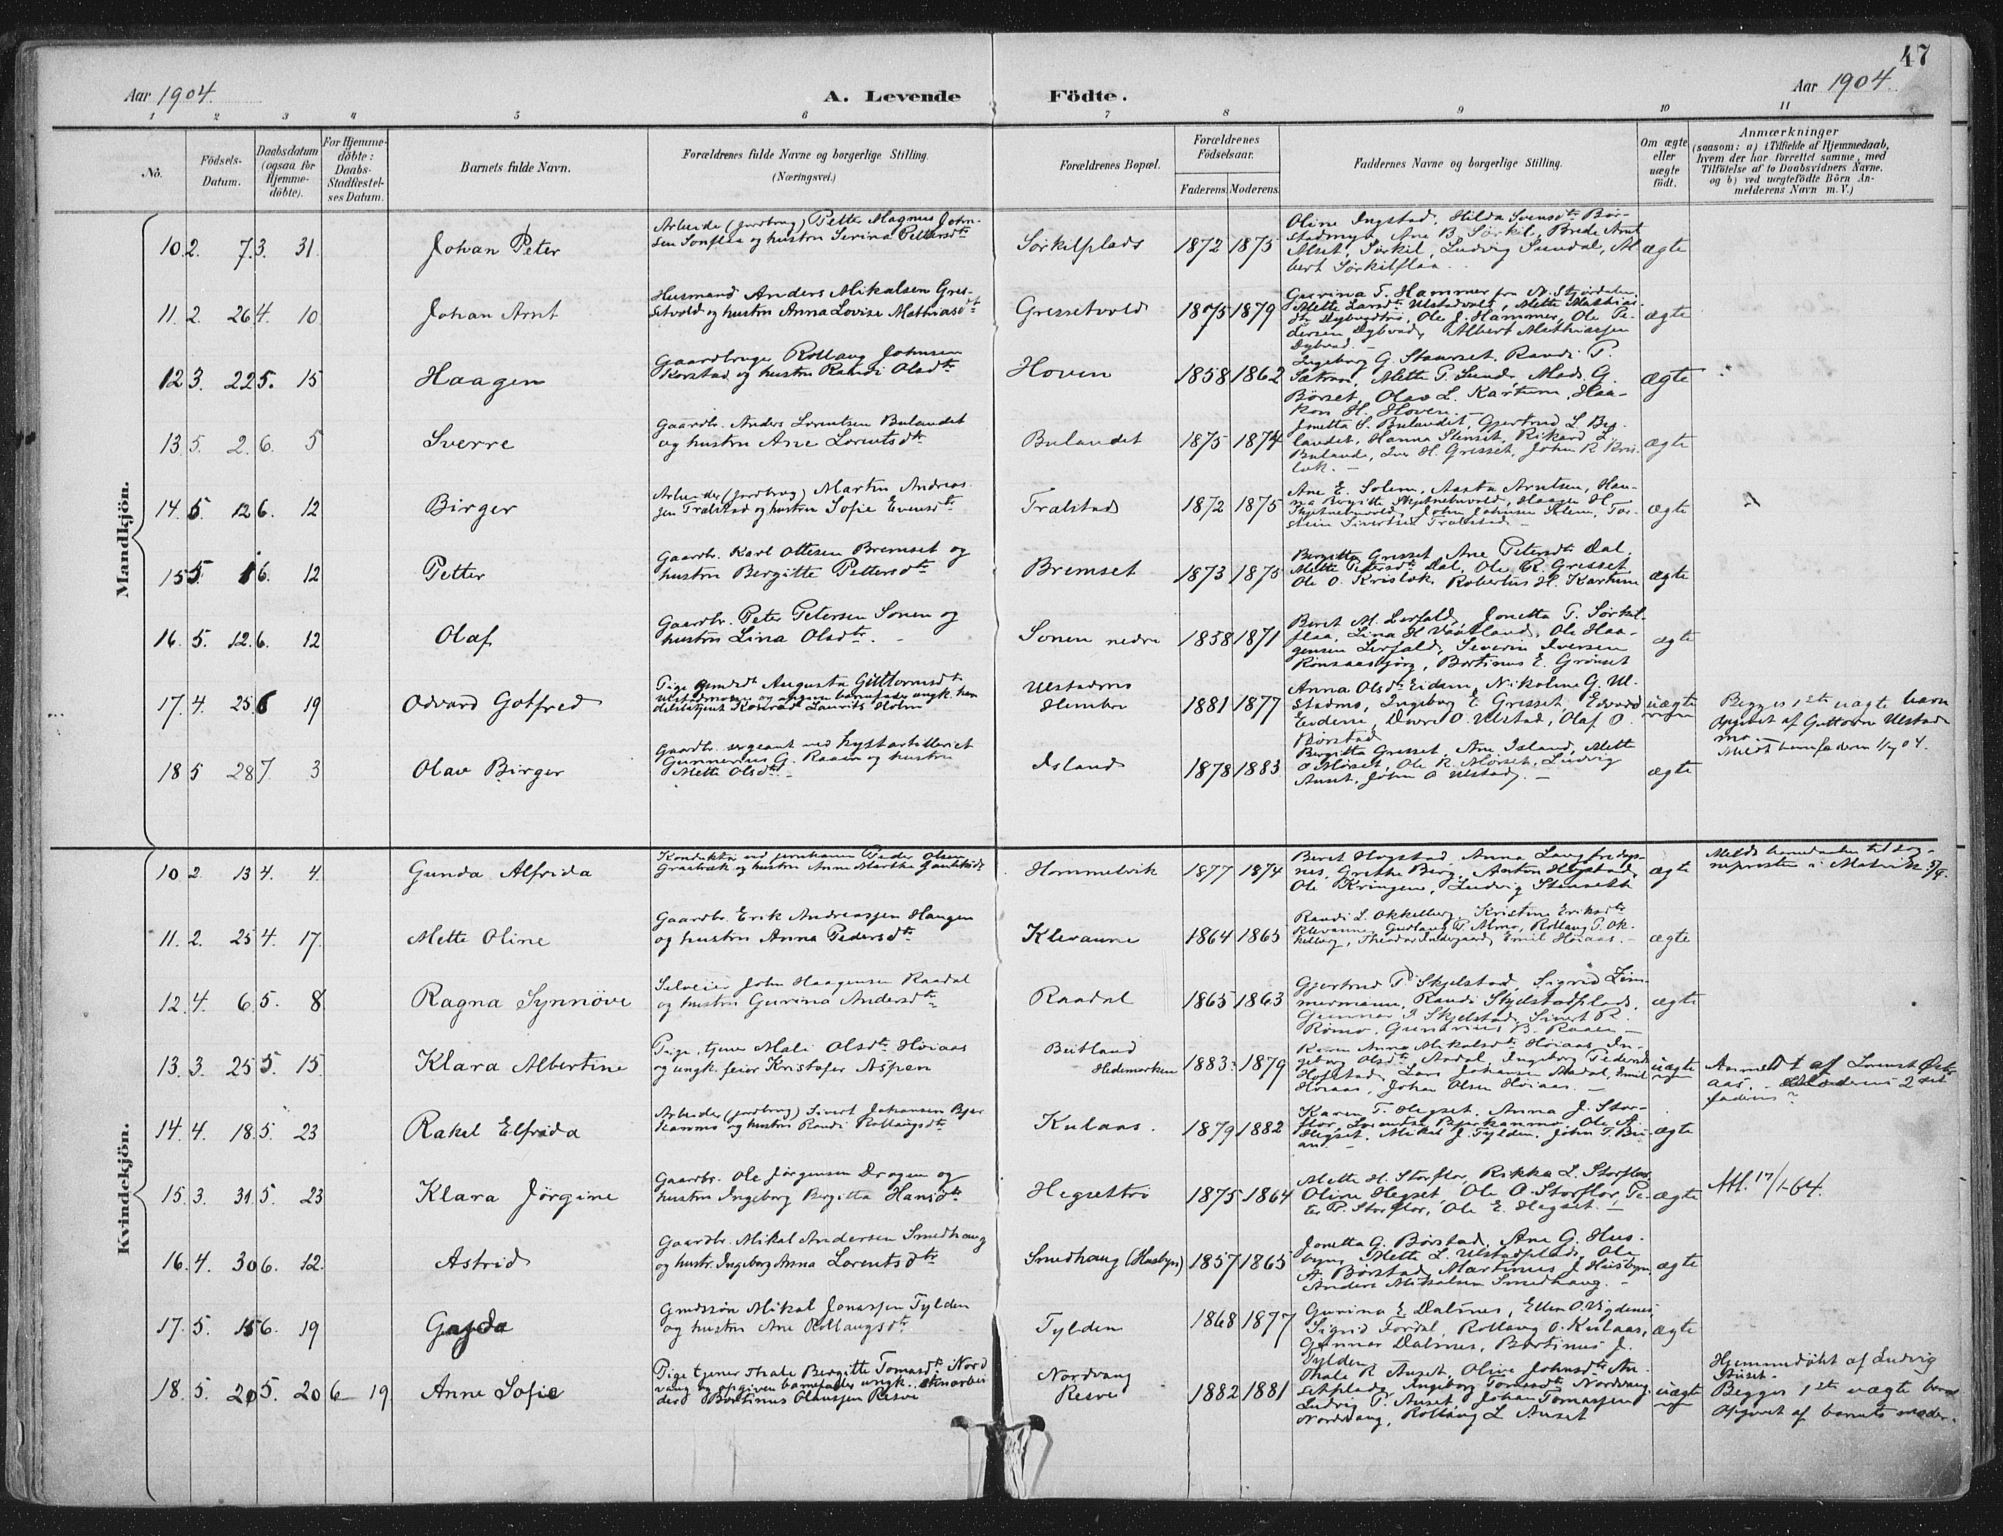 47
Aar 1904.
A. Levende Födte.
Aar 1904.
1 2 3 4 5 6 7 8 9 10 11
No.
Födsels-Datum.
Daabsdatum (ogsaa for Hjemmedöbte).
For Hjemmedöbte: Daabs-Stadfæstelses Datum.
Barnets fulde Navn.
Forældrenes fulde Navne og borgerlige Stilling.
(Næringsvei.)
Forældrenes Bopæl.
Forældrenes Födselsaar.
Faderens. Moderens.
Faddernes Navne og borgerlige Stilling.
Om ægte eller uægte födt.
Anmærkninger
(saasom: a) i Tilfælde af Hjemmedaab, hvem der har forrettet samme, med Tilföielse af to Daabsvidners Navne. og b) ved uægtefödte Börn Anmelderens Navn m. V.)
Mandkjön.
10. 2. 7. 3. 31 Johan Peter
Arbeider (jordbrug) Petter Magnus John-
sen Sonflaa og hustru Serina Pettersdtr
Sørkilplads 1872 1875
Oline Ingstad, Hilda Svensdtr Bør-
stadmyr, Ane B. Sørkil, Brede Arnt
Alset, Sørkil, Ludvig Sundal, Al-
bert Sørkilflaa.
ægte
11. 2. 26 4. 10 Johan Arnt
Husmand Anders Mikalsen Gres-
setvold og hustru Anna Lovise Mathiasdtr
Gressetvold 1875 1879
Gurina T. Hammer fra N. Stjørdalen,
Mette Larsdtr Ulstadvold, Mette Mathias-
dtr Dybvadbro, Ole J. Hammer, Ole Pe-
dersen Dybvad, Albert Mathiassen
Dybvad.
ægte
12 3. 22 5. 15 Haagen
Gaardbruger Rollaug Johnsen
Korstad og hustru Randi Olsdtr
Hoven 1858 1862
Ingeborg G. Staurset, Randi P.
Sætran, Mette P. Sunde, Mads G.
Børset, Olav L. Kartum, Haa-
kon H. Hoven.
ægte
13 5 2. 6. 5 Sverre
Gaardbr. Anders Lorentsen Bulandet
og hustru Ane Lorentsdtr
Bulandet 1875 1874
Jonetta S. Bulandet, Gjertrud L. Bu-
landet, Hanna Stenset, Rikard L.
Bulande, Iver H. Gresset, John R. Kris-
lok.
ægte
14. 5. 12 6. 12 Birger
Arbeider (jordbrug) Martin Andreas-
sen Trælstad og hustru Sofie Evensdtr
Trælstad 1872 1875
Ane E. Solem, Aasta Arntsen, Han-
na Bergitte Skjelnebuvold, Haagen H.
Skjelnebuvold, John Johnsen Solem, Tor-
stein Sivertsen Trælstad.
ægte
15 5. 1 6. 12 Petter
Gaardbr. Karl Ottesen Bremset og
hustru Bergitte Pettersdtr
Bremset 1873 1875
Bergitte Gresset, Ane Petersdtr Dal,
Mette Petersdtr Dal, Ole R. Gresset,
Ole O. Krislok, Robertus H. Kartum
ægte
16. 5. 12. 6. 12 Olaf
Gaardbr. Peter Petersen Sonen og
hustru Lina Olsdtr.
Sonen nedre 1858 1871
Beret M. Lerfald, Jonetta P. Sørkil-
flaa, Lina H. Vaatland, Ole Haa-
gensen Lerfald, Severin Iversen
Rønsaasbjørg, Bertinus E. Grønset
ægte
17. 4. 25 6 19 Odvard Gotfred
Pige Augusta Guttormsdtr
Ulstadmoen og angiven barnefader ungk. han
delsbetjent Konrad Laurits Holm
Ulstadmo Hembre 1881 1877
Anna Olsdtr Eidem, Nikoline G. Ul-
stadmo, Ingeborg E. Gresset, Edvard
Eidem, Dorre O. Ulstad, Olaf O.
Børstad
uægte
Begges 1ste uægte barn
Opgivet af Guttorm Ulstad-
mo.
Meldt barnefaderen 1/7 04.
18 5 28 7. 3 Olav Birger
Gaardbr. sergeant ved kystartilleriet
Gunnerius G. Raaen og hustru
Mette Olsdtr
Island 1878 1883
Bergitta Gresset, Ane Island, Mette
O. Mørset, Ole R. Mørset, Ludvig
Auset, John O. Ulstad.
ægte
Kvindekjön.
10 2 13 4. 4. Gunda Alfrida
Konduktør ved jernbanen Peder Olsen
Hommelvik 1877 1874
Beret Hogstad, Anna Langfredgs-
nes, Grethe Berg, Anton Hogstad,
Ole Kringen, Ludvig Stensett
ægte
11. 2. 25 4. 17. Mette Oline
Gaardbr. Erik Andreassen Haugen
og hustru Anna Pedersdtr
Klevaune 1864 1865
Randi L. Okkelberg, Kristine Eriksdtr
Klevaune, Gudlaug P. Almo, Rollaug P. Ok-
kelberg, Theodor Indergaard, Emil Høiaas.
ægte
12. 4. 6 5. 8 Ragna Synnöve
Selveier John Haagensen Raadal
og hustru Gurina Andersdtr
Raadal 1865 1863
Gjertrud P. Skjelstad, Sigrid Zim
mermann, Randi Skjelstadplads,
Gunnar P. Skjelstad, Sivert R.
Rømo, Gunerius B. Raaen
ægte
13. 3. 25 5. 15 Klara Albertine
Pige, tjener Mali Olsdtr Høiaas
og ungk. feier Kristofer Aspen
Beitland Hedemarken 1883 1879
Karen Anna Mikalsdtr Høiaas, In-
geborg Olsdtr Aadal, Ingeborg Pedersdtr
Hofstad, Lars Johansen Aadal, Emil
Høiaas, Johan Olsen Høiaas.
uægte
14. 4. 18. 5. 23 Rakel Elfrida
Arbeider (jordbrug) Sivert Johansen Bjør
kammo og hustru Randi Rollaugsdtr
Kulaas. 1879 1882
Karen T. Hegset, Anna J. Stor-
flor, Lorentse Bjørkammo, Ole A.
Hegset, Mikal J. Tylden, John T. Bu-
aas.
ægte
15. 3. 31. 5. 23 Klara Jörgine
Gaardbr. Ole Jørgensen Dragen og
hustru Ingeborg Bergitta Hansdtr
Hegsettrø 1875 1864
Mette H. Storflor, Rikka L. Storflor,
Oline Hegset, Ole O. Storflor, Pe-
ter P. Storflor, Ole E. Hegset.
ægte
Att. 17/1-64.
16. 4. 30 6. 12. Astrid
Gaardbr. Mikal Andersen Smedhaug
og hustr. Ingeborg Anna Lorentsdtr
Smedhaug (Husbyn) 1857 1865
Jonetta G. Børstad, Ane G. Hus-
byn, Mette L. Ulstadplads, Ole
A. Børstad, Martinus J. Husbyn,
Anders Mikalsen Smedhaug.
ægte
17. 5. 15 6. 19
Grudssøn Mikal Jonassen Tylden
og hustru Ane Rollaugsdtr
Tylden 1868 1877
Gurina E. Dalsnes, Ellen O. Vigdenes
Sigrid Fordal, Rollaug O. Kulaas,
Gunnar Dalsnes, Bertinus J.
Tylden
ægte
18. 5. 20 5. 20 6 19 Anne Sofie
Pige tjener Thale Bergitte Tomasdtr Nord
vang og opgiven barnefader ungk. stenarbei
der Bertinus Claussen Resve
Nordvang Resve 1882 1881
Thale R. Auset, Oline Johnsdtr Au-
setplads, Ingeborg Tomasdtr Nordvang,
Ludvig P. Auset, Johan Tomassen
Nordvang, Rollaug L. Auset
uægte
Hjemmedøbt af Ludvig
Auset.
Begges 1ste uægte barn
Opgivet af barnets moder.